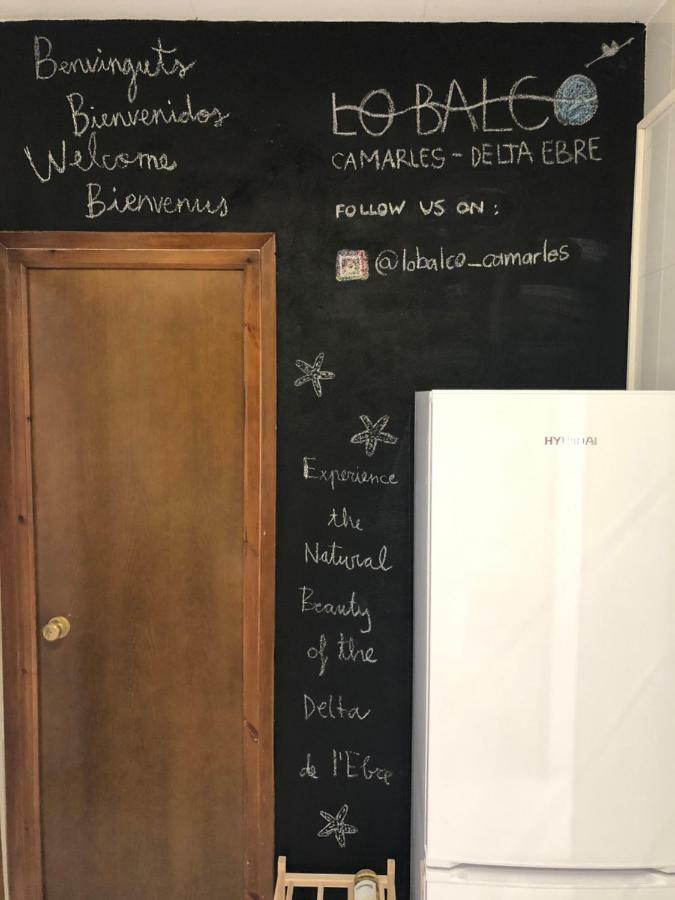 Benvinguts
Bienvenidos
Welcome
Bienvenus
LO BALCO
CAMARLES - DELTA EBRE
FOLLOW US ON :
@lobalco_camarles
Experience
the
Natural
Beauty
of the
Delta
de l'Ebre
HYUNDAI